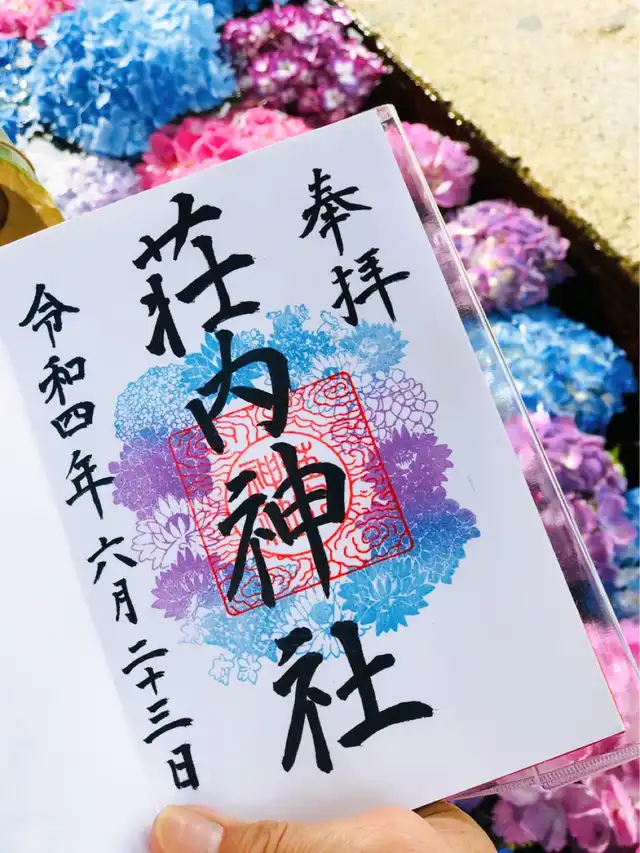 奉拝
荘内神社
令和四年六月二十三日